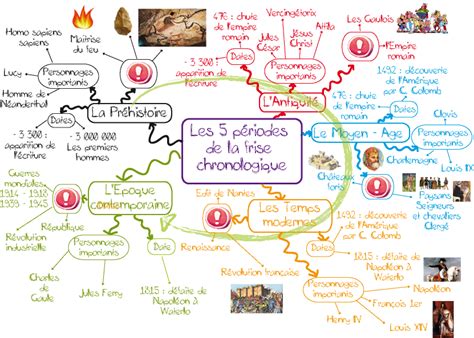 Les 5 périodes
de la frise
chronologique
La Préhistoire
Homo sapiens
sapiens
Maîtrise
du feu
Lucy
Personnages
importants
Homme de
Néanderthal
Dates
- 3 300 :
apparition de
l'écriture
- 3 000 000 :
les premiers
hommes
L'Antiquité
Dates
476 : chute
de l'empire
romain
- 3 300 :
apparition de
l'écriture
Personnages
importants
Vercingétorix
Jules
César
Jésus
Christ
Attila
Les Gaulois
l'Empire
romain
Le Moyen - Age
Dates
1492 : découverte
de l'Amérique
par C. Colomb
476: chute
de l'empire
romain
Personnages
importants
Clovis
Charlemagne
Louis IX
Châteaux
forts
Paysans
Seigneurs
et chevaliers
Clergé
Les Temps
modernes
Edit de Nantes
Renaissance
Révolution française
Dates
1492 : découverte
de l'Amérique
par C. Colomb
1815 : défaite de
Napoléon à
Waterlo
Personnages
importants
Napoléon
François 1er
Louis XIV
Henry IV
L'Epoque
contemporaine
Guerres
mondiales
1914 - 1918
1939 - 1945
République
Révolution
industrielle
Personnages
importants
Charles
de
Gaulle
Jules Ferry
Date
1815 : défaite de
Napoléon à
Waterlo